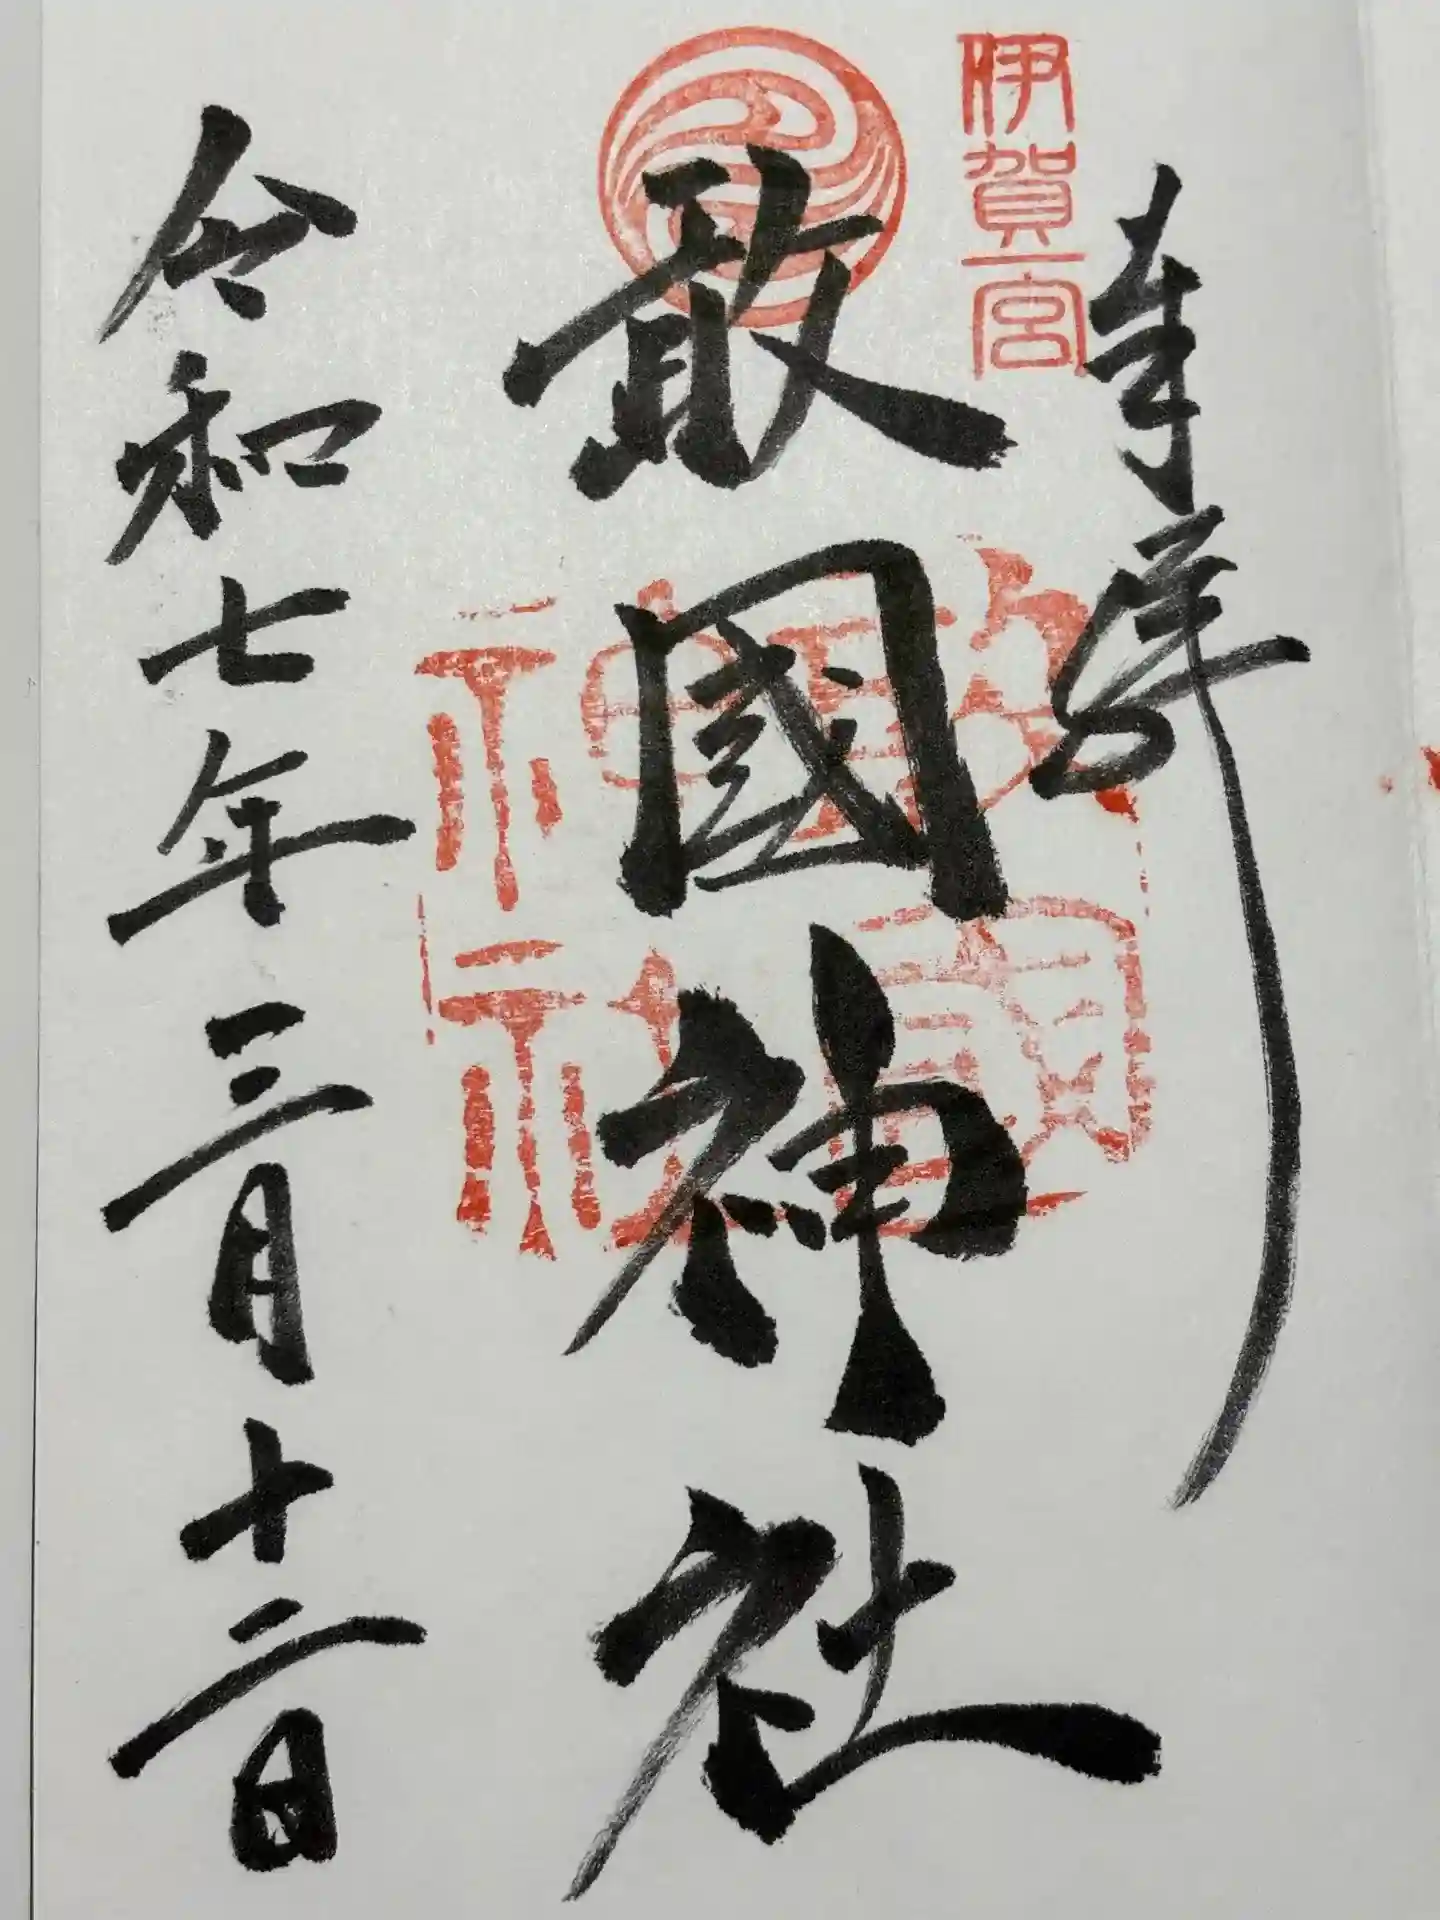 奉拝
伊賀一宮
敢國神社
敢國神社
令和七年三月十二日